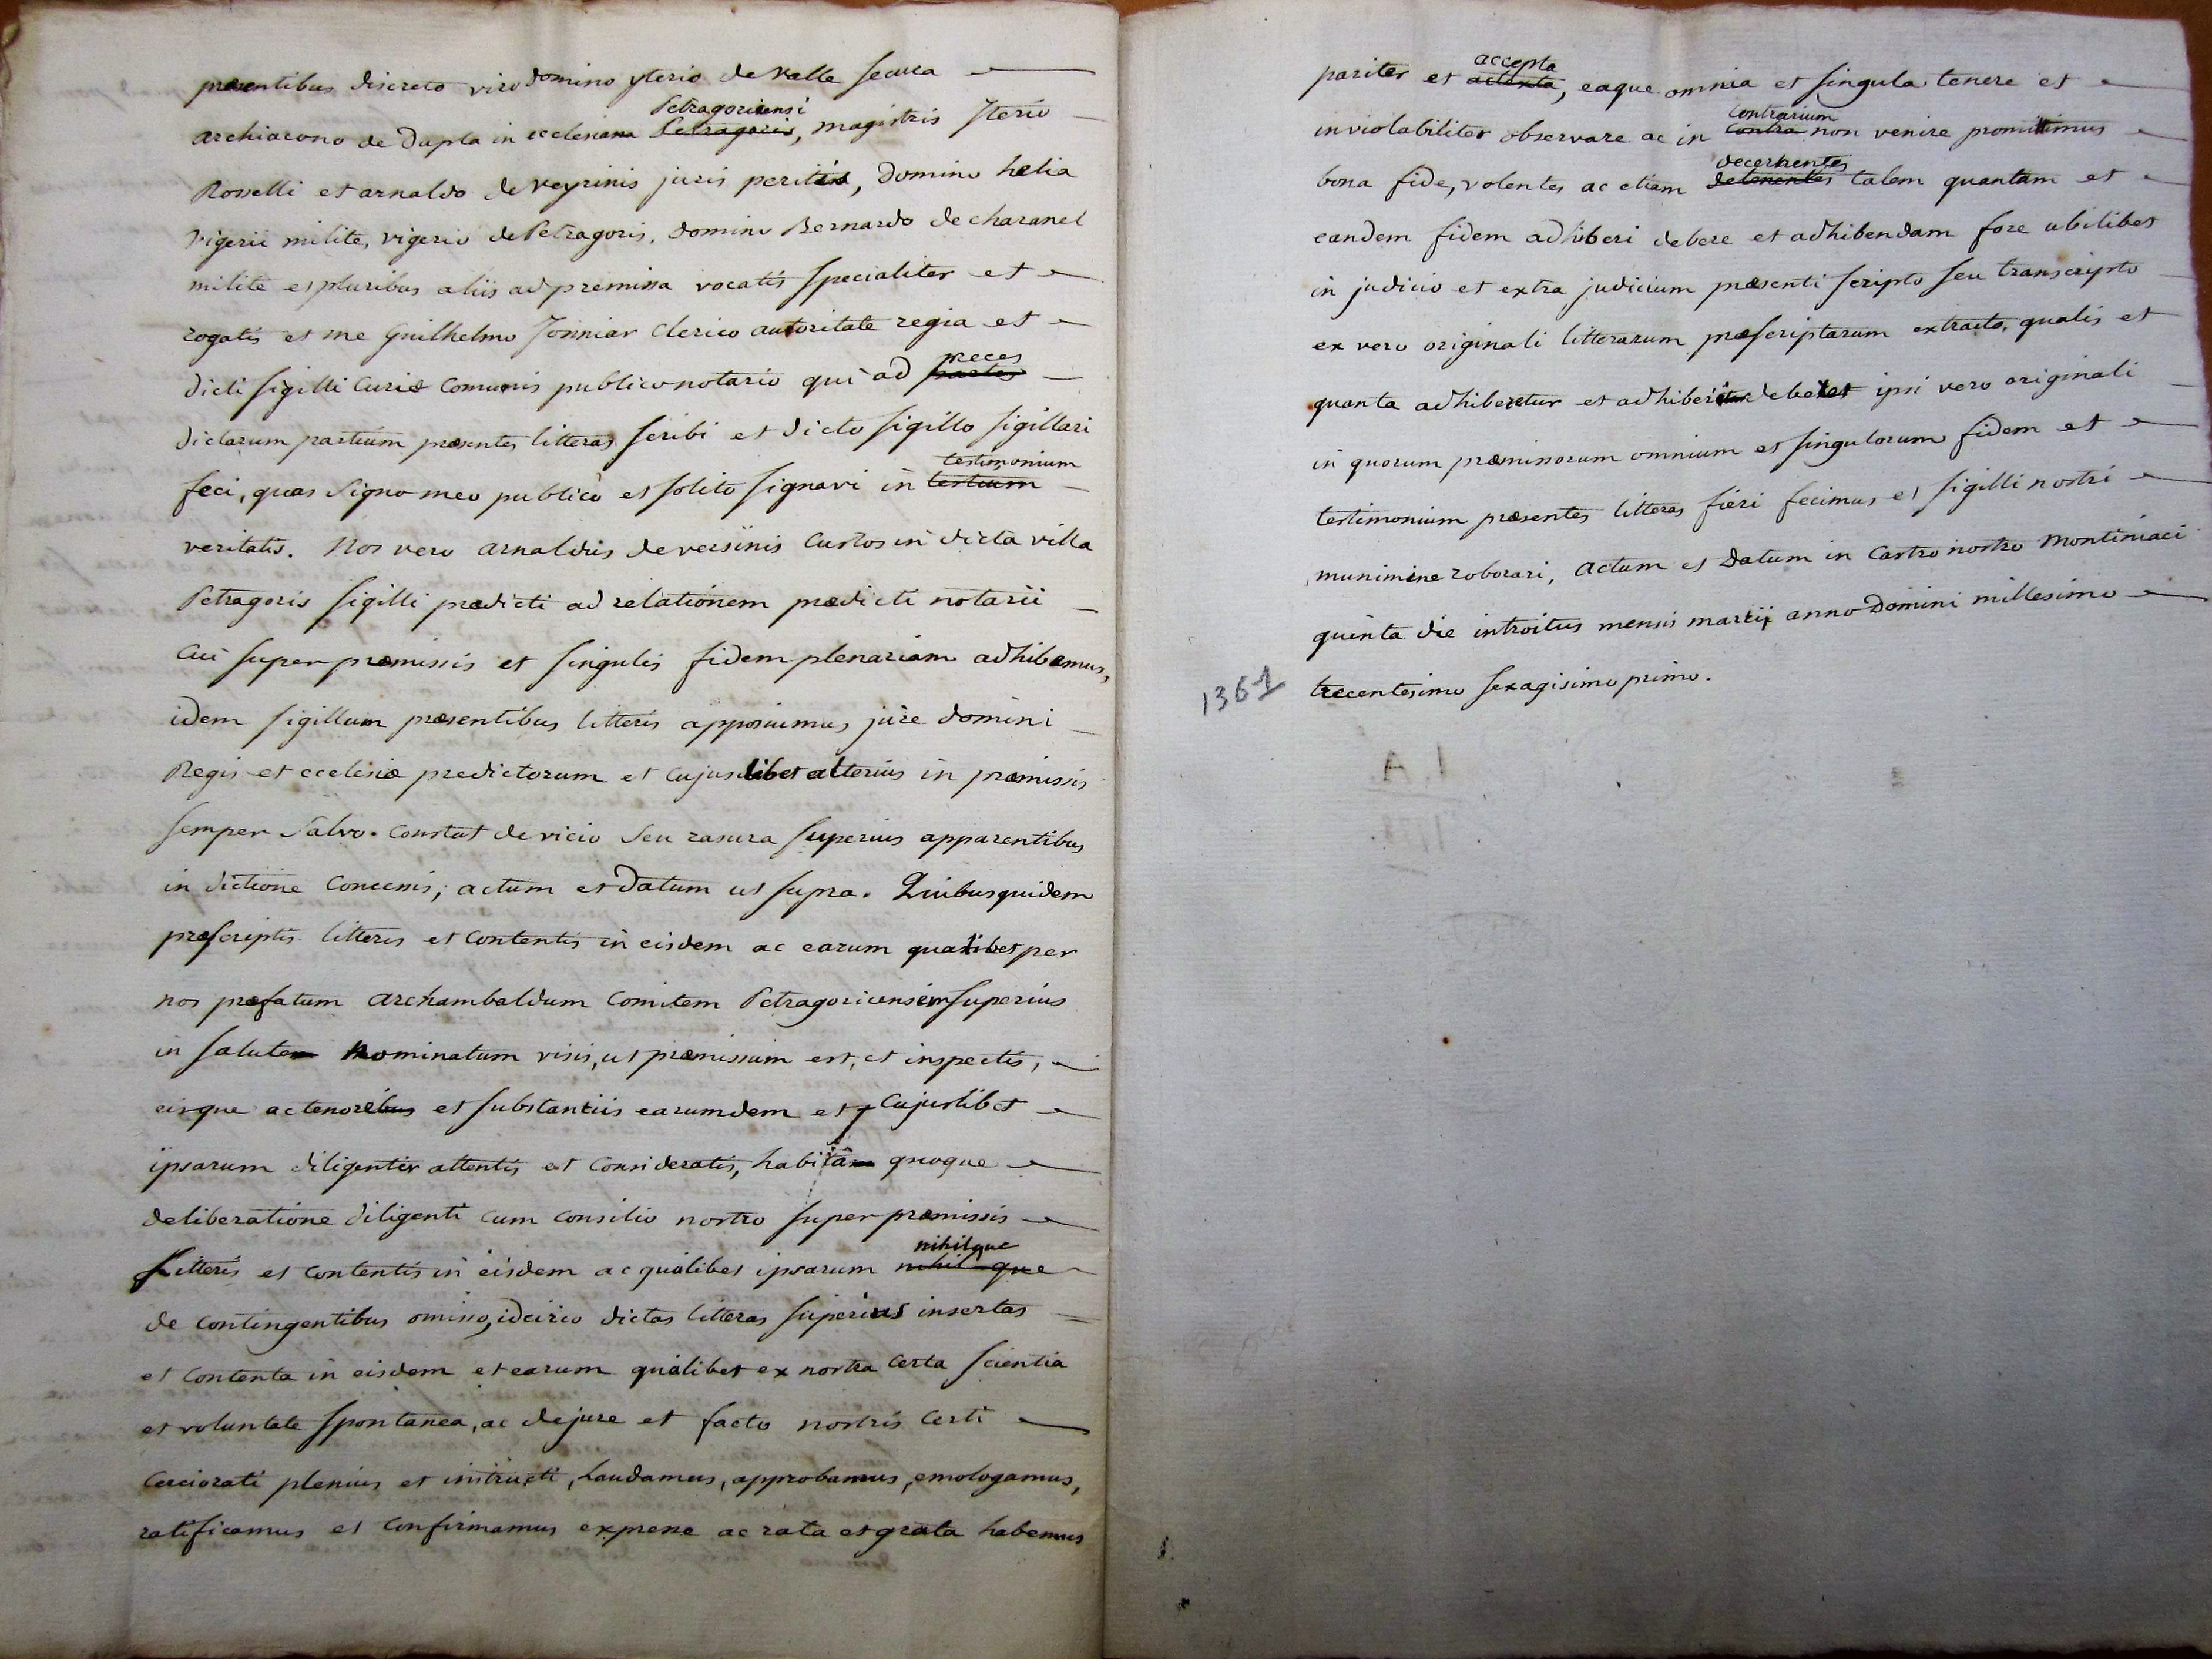 præsentibus discreto viro domino yterio de valle secura
archiacono de Dapla in ecclesiam Petragoricensi Petragoris, magistris Iterio
Rosselli et arnaldo de veyrinis juris peritis, domino helia
vigerii milite, vigerio de Petragoris, domino Bernardo de charanel
milite et pluribus aliis ad premissa vocatis specialiter et
rogatis et me Guilhelmo Jonniar clerico autoritate regia et
dicti sigilli curiæ comunis publico notario qui ad preces partes
dictarum partium præsentes litteras scribi et dicto sigillo sigillari
feci, quas signo meo publico et solito signavi in testimonium testium
veritatis. Nos vero arnaldus de versinis custos in dicta villa
Petragoris sigilli prædicti ad relationem prædicti notarii
cui super præmissis et singulis fidem plenariam adhibemus,
idem sigillum præsentibus litteris apposuimus, jure domini
Regis et ecclesiæ predictorum et cujuslibet alterius in præmissis
semper salvo. constat de vicio seu rasura superius apparentibus
in dictione concessis; actum et datum ut supra. Quibusquidem
præscriptis litteris et contentis in eisdem ac earum qualibet per
nos præfatum archambaldum comitem Petragoricensem superius
in salute nominatum visis, ut præmissum est, et inspectis,
eisque ac tenoribus et substantiis earumdem et cujuslibet
ipsarum diligenter attentis et consideratis, habita quoque
deliberatione diligenti cum consilio nostro super præmissis
litteris et contentis in eisdem ac qualibet ipsarum nihilque nihil que
de contingentibus omisso, idcirco dictas litteras superius insertas
et contenta in eisdem et earum qualibet ex nostra certa scientia
et voluntate spontanea, ac de jure et facto nostris certi
cerciorati plenius et instructi, laudamus, approbamus, emologamus,
ratificamus et confirmamus expresse ac rata et grata habemus
pariter et accepta actexta, eaque omnia et singula tenere et
inviolabiliter observare ac in contrarium contra non venire promittimus
bona fide, volentes ac etiam decernentes detenentes talem quantam et
eandem fidem adhiberi debere et adhibendam fore ubilibet
in judicio et extra judicium præsenti scripto seu transcripto
ex vero originali litterarum præscriptarum extracto, qualis et
quanta adhiberetur et adhiberi deberet ipsi vero originali
in quorum præmissorum omnium et singulorum fidem et
testimonium præsentes litteras fieri fecimus et sigilli nostri
munimine roborari, actum et datum in castro nostro Montiniaci
quinta die introitus mensis martii anno domini millesimo
1361 trecentesimo sexagisimo primo.